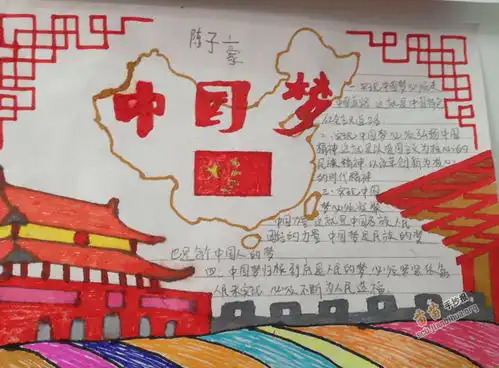 陈子豪
中国梦
一、实现中国梦必须走
中国道路 这就是中国特色
社会主义道路
二、实现中国梦必须弘扬中国
精神 这就是以爱国主义为核心的
民族精神 以改革创新为核心
的时代精神
三、实现中国
梦必须凝聚
中国力量 这就是中国各族人民
团结的力量 中国梦是民族的梦
也是每个中国人的梦
四、中国梦归根到底是人民的梦 必须紧紧依靠
人民来实现 必须不断为人民造福